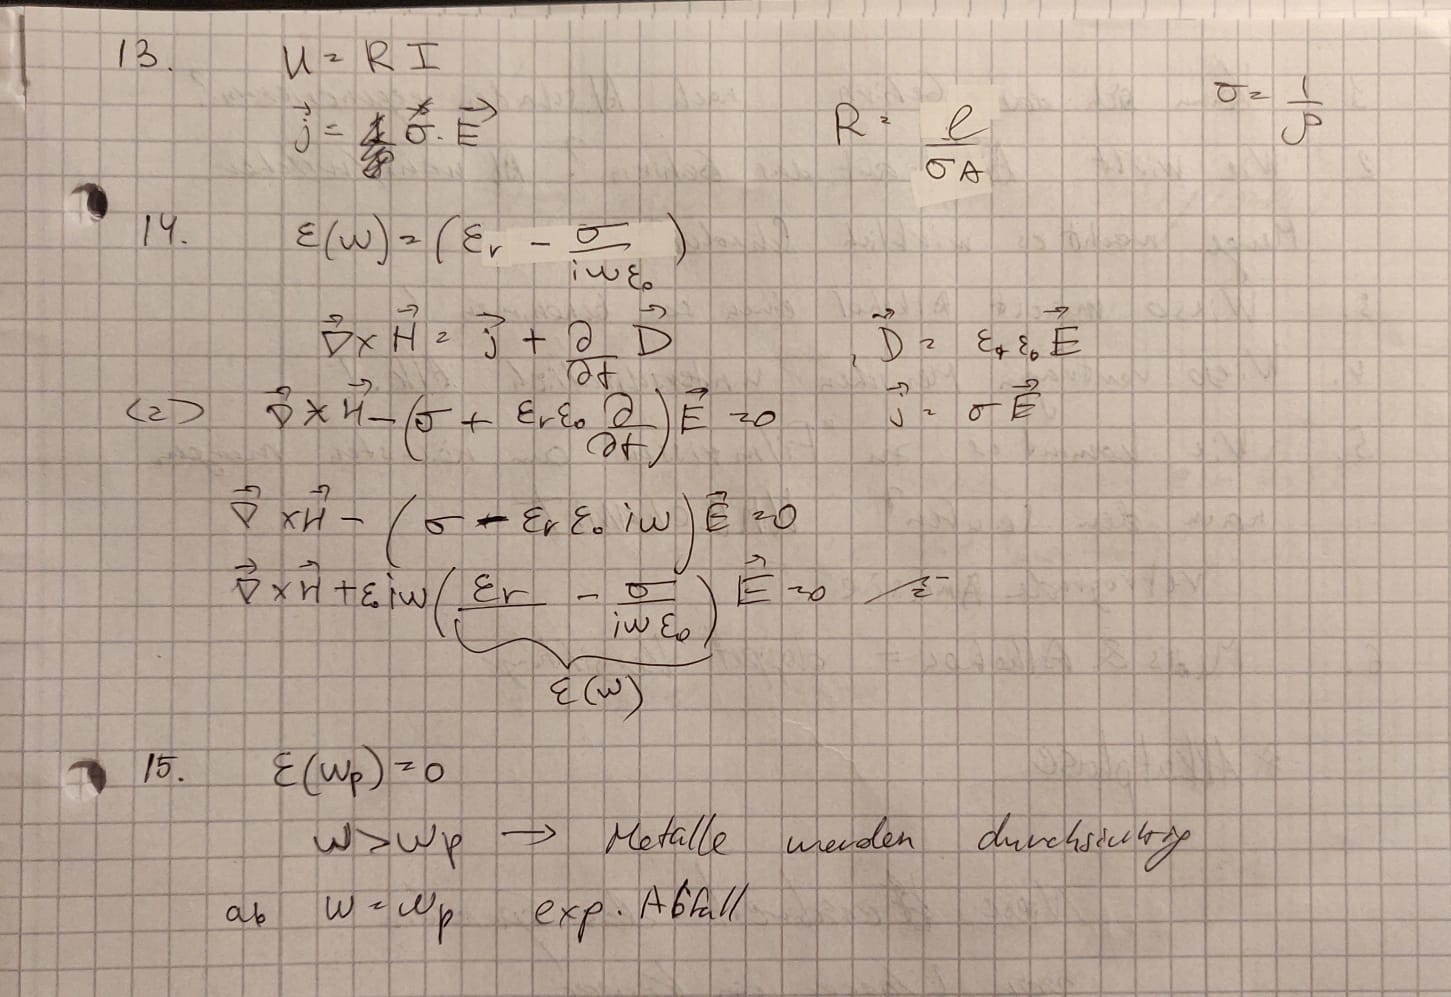 13. U = R I
j⃗ = σ · E⃗ R = l/(σA) σ = 1/ρ
14. ε(ω) = (εr − σ/(iωε₀))
∇⃗ × H⃗ = j⃗ + ∂/∂t D⃗ , D⃗ = εr ε₀ E⃗
(=) ∇⃗ × H⃗ − (σ + εr ε₀ ∂/∂t) E⃗ = 0 j⃗ = σ E⃗
∇⃗ × H⃗ − (σ − εr ε₀ iω) E⃗ = 0
∇⃗ × H⃗ + ε₀ iω (εr − σ/(iωε₀)) E⃗ = 0
ε(ω)
15. ε(ωp) = 0
ω > ωp → Metalle werden durchsichtig
ab ω = ωp exp. Abfall